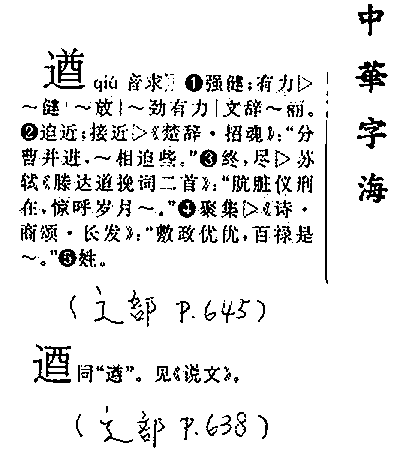 中華字海
遒 qiú 音求 ❶强健;有力▷
～健|～放|～劲有力|文辞～丽。
❷迫近;接近▷《楚辞·招魂》:“分
曹并进,～相迫些。”❸终,尽▷苏
轼《滕达道挽词二首》:“肮脏仪刑
在,惊呼岁月～。”❹聚集▷《诗·
商颂·长发》:“敷政优优,百禄是
～。”❺姓。
(辶部 P.645)
逎 同“遒”。见《说文》。
(辶部 P.638)